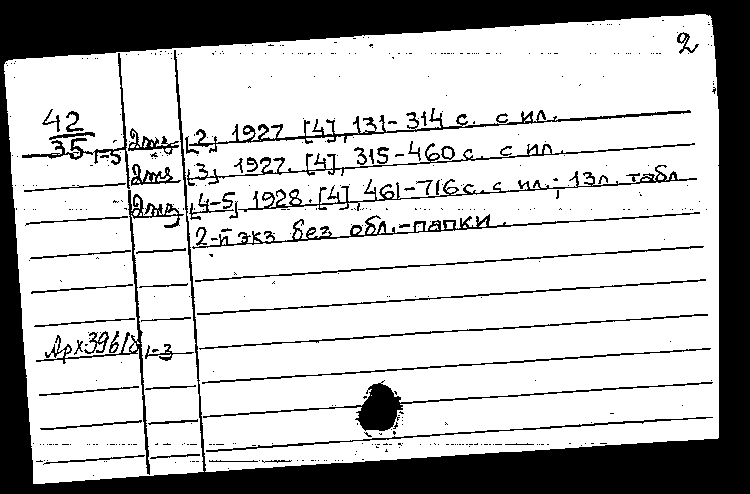 2
42
35 1-5
2экз [2] 1927 [4], 131-314 с. с ил.
2экз [3] 1927. [4], 315-460 с. с ил.
2экз [4-5] 1928. [4], 461-716 с. с ил.; 13л. табл
2-й экз без обл.-папки.
Арх 1-3